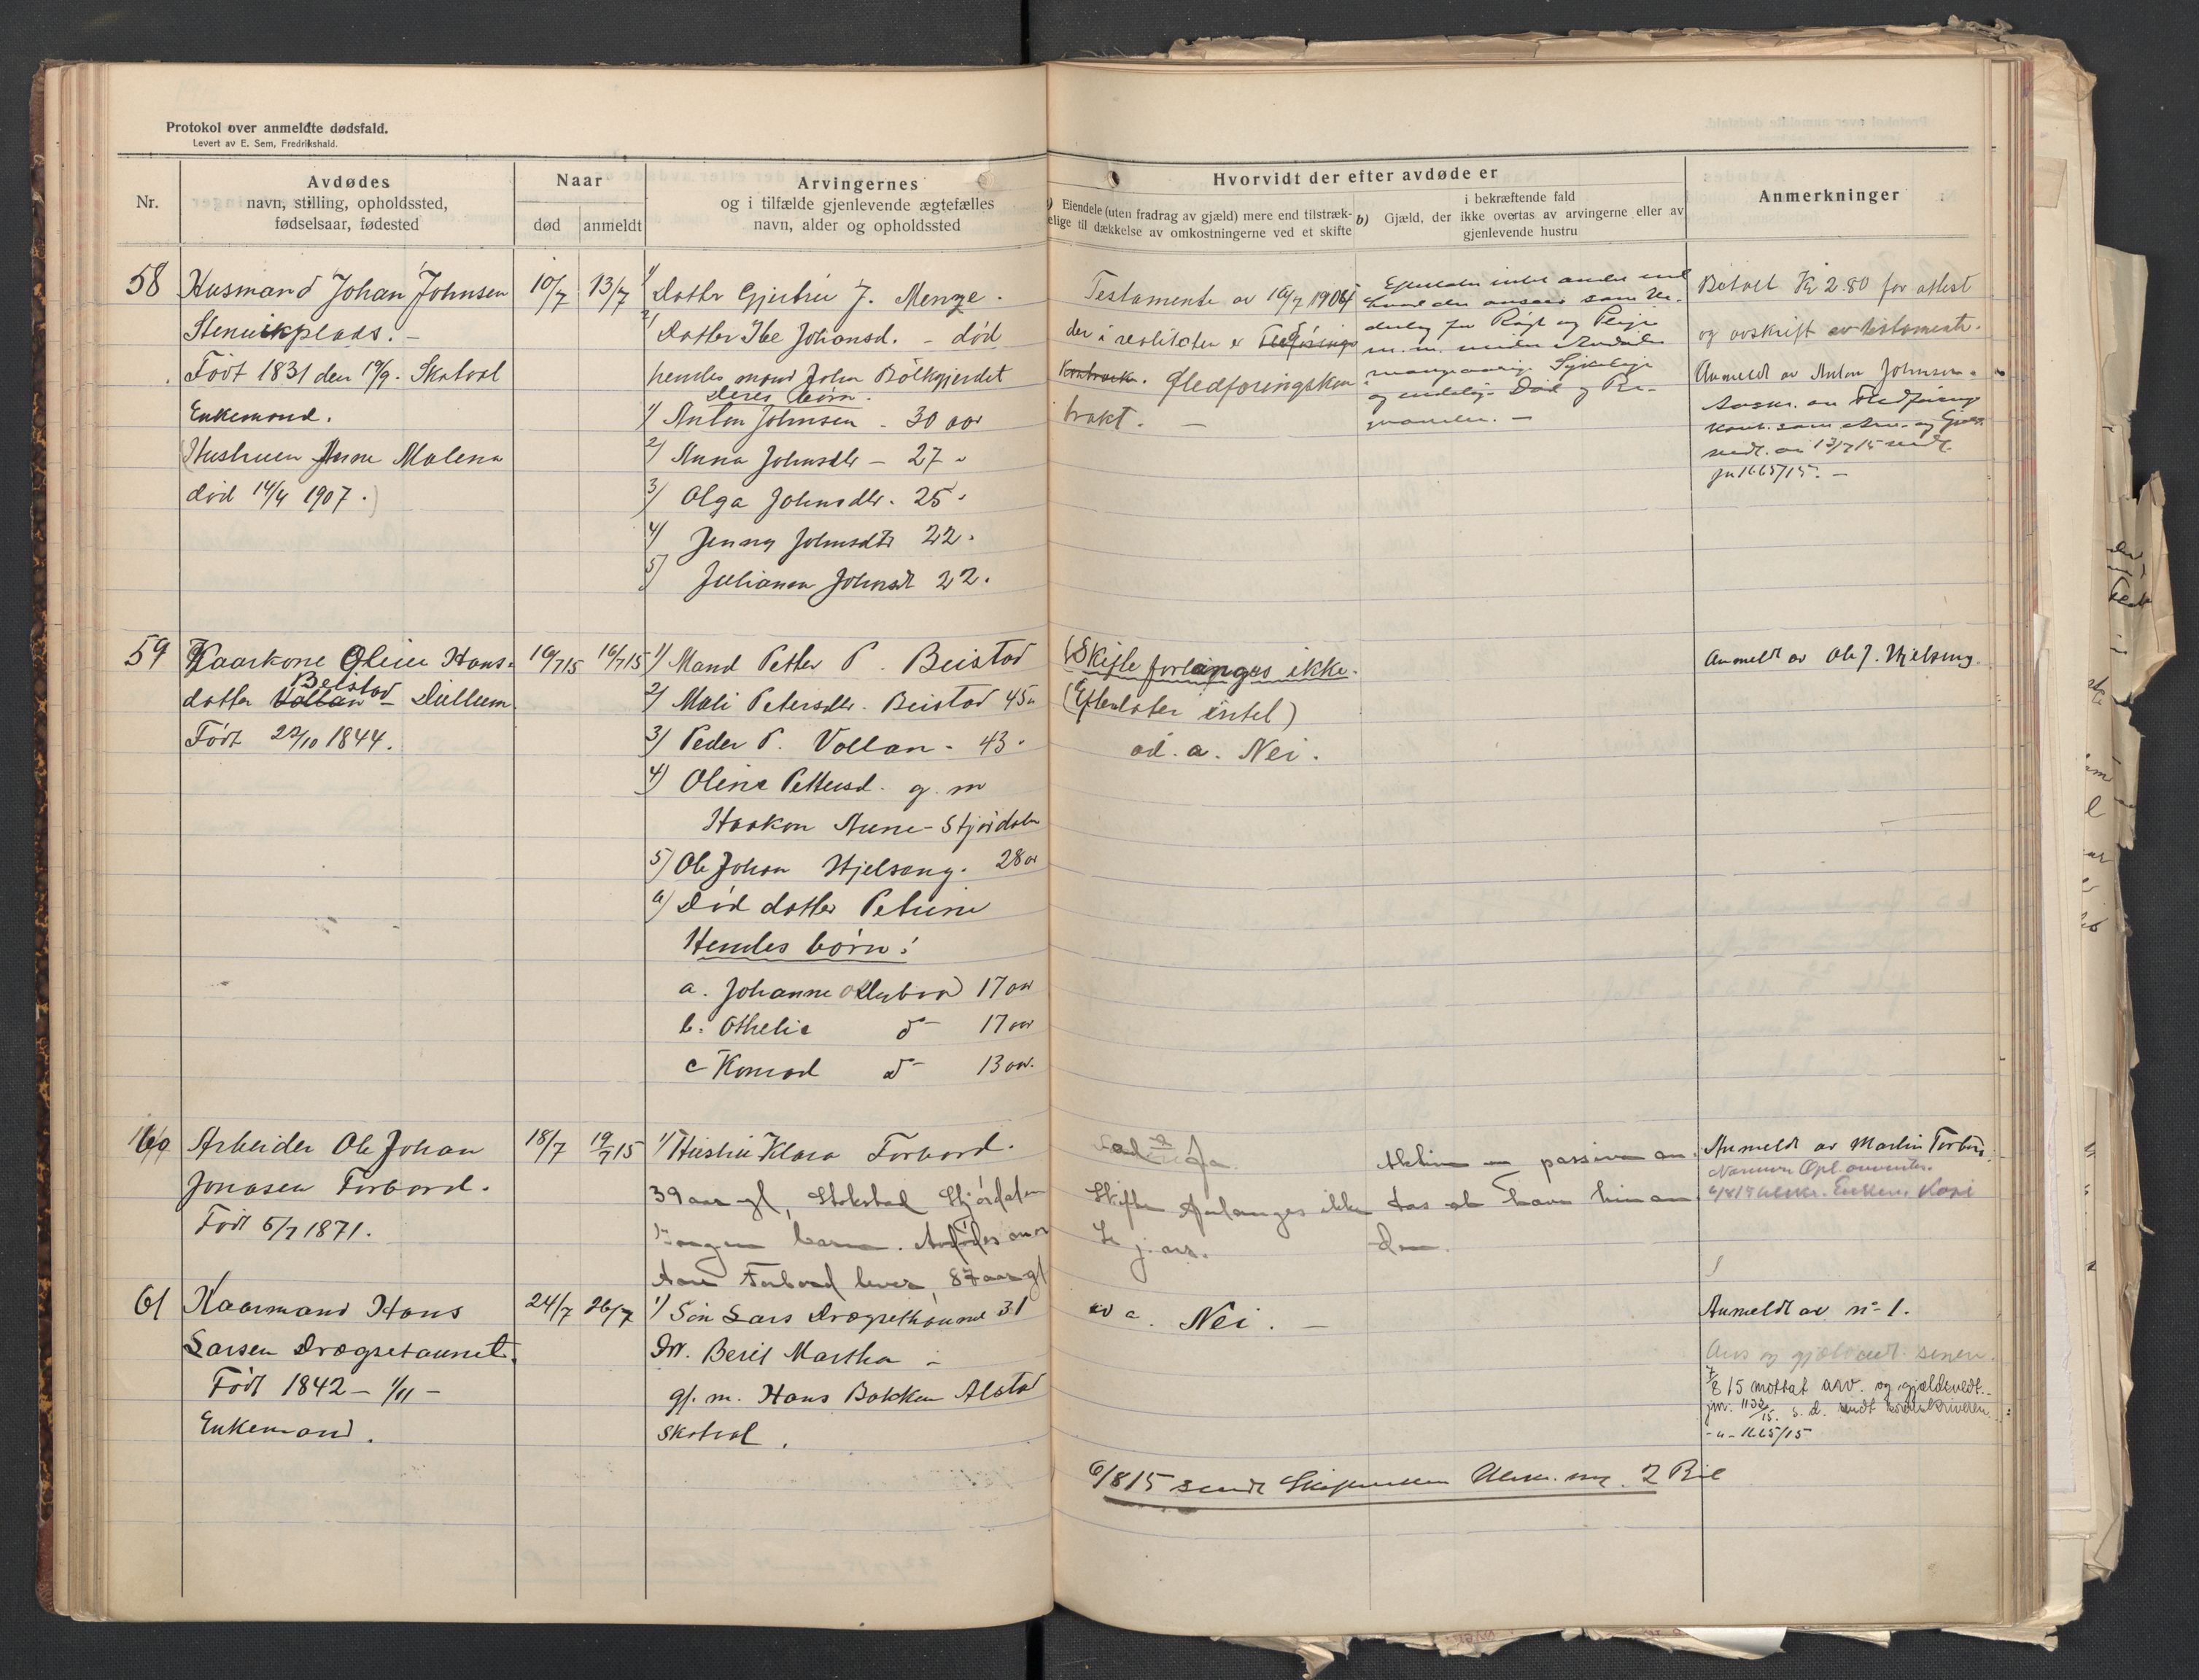 Protokol over anmeldte dødsfald.
Levert av E. Sem, Fredrikshald.
Nr.
Avdødes
navn, stilling, opholdssted,
fødselsaar, fødested
Naar
død
anmeldt
Arvingernes
og i tilfælde gjenlevende ægtefælles
navn, alder og opholdssted
Hvorvidt der efter avdøde er
Eiendele (uten fradrag av gjæld) mere end tilstræk-
elige til dækkelse av omkostningerne ved et skifte
b) Gjæld, der i bekræftende fald
ikke overtas av arvingerne eller av
gjenlevende hustru
Anmerkninger
58
Husmand Johan Johnsen
Stenvikplads. -
Født 1831 den 19/9. Skatval
Enkemand.
(Hustruen Anne Malena
død 14/4 1907.)
10/7
13/7
1/ Datter Gjertrue J. Menge.
2/ Datter Johansd. - død
hendes mand John Bölkgjerdet
Deres børn.
1/ Anton Johnsen - 30 aar
2/ Anna Johnsdtr - 27 "
3/ Olga Johnsdtr. 25 "
4/ Jenny Johnsdtr 22.
5/ Julianna Johnsdt 22.
Testamente av 16/7 1904
der i realiteten er
Kontrakt. Fledføringskon
trakt. -
Efterlater intet andet end
hvad der ansees som
for Røgt og Pleje
m. m. under
mangeaarig Sykeleje
og endelig Død og Be-
gravelse. -
Betalt Kr 2.80 for attest
og avskrift av testamente.
Anmeldt av Anton Johnsen.
Avskr. av Fledførings
kont. som
13/7 15 sendt.
jn 1665/15. -
59
Kaarkone Oline Hans-
datter Vollan Beistad - Dullum
Født 22/10 1844.
16/7 15
16/7 15
1/ Mand Petter P. Beistad
2/ Mali Petersdtr. Beistad 45 "
3/ Peder P. Vollan - 43 "
4/ Oline Pettersd. g. m
Haakon Aune - Stjørdalen
5/ Ole Johan Hjelseng. 28 ar
6/ Død datter Petrine
Hendes børn:
a. Johanne 17 aar
b. Othelie do 17 aar
c Konrad do 13 aar.
(Skifte forlanges ikke.
(Efterlater intet)
ad. a. Nei.
Anmeldt av Ole J. Hjelseng.
60
Arbeider Ole Johan
Jonasen Forbord.
Født 5/7 1871.
18/7
19/7 15
1/ Hustru Klara Forbord.
39 aar gl, Stokstad Stjørdalen
Ingen barn. Avdødes mor
Forbord lever, 87 aar gl
ad a Ja.
Skifte forlanges ikke
Aktiva og passiva an
tas at have hinan
den
Anmeldt av Martin Forbord.
61
Kaarmand Hans
Larsen Drogsetaunet.
Født 1842 - 1/11 -
Enkemand.
24/7
26/7
1/ Søn Lars Drogsethaunet 31
Dtr. Berit Martha -
gf. m. Hans Bakken Alstad
Skatval.
ad a. Nei. -
Anmeldt av nº 1.
Arv og gjældsvedt. senere.
7/8 15 mottat arv. og gjældsvedt. -
jnr. 1132/15. s. d. sendt sorenskriveren.
- " - 1665/15
6/8 15 sendt 2 Bil